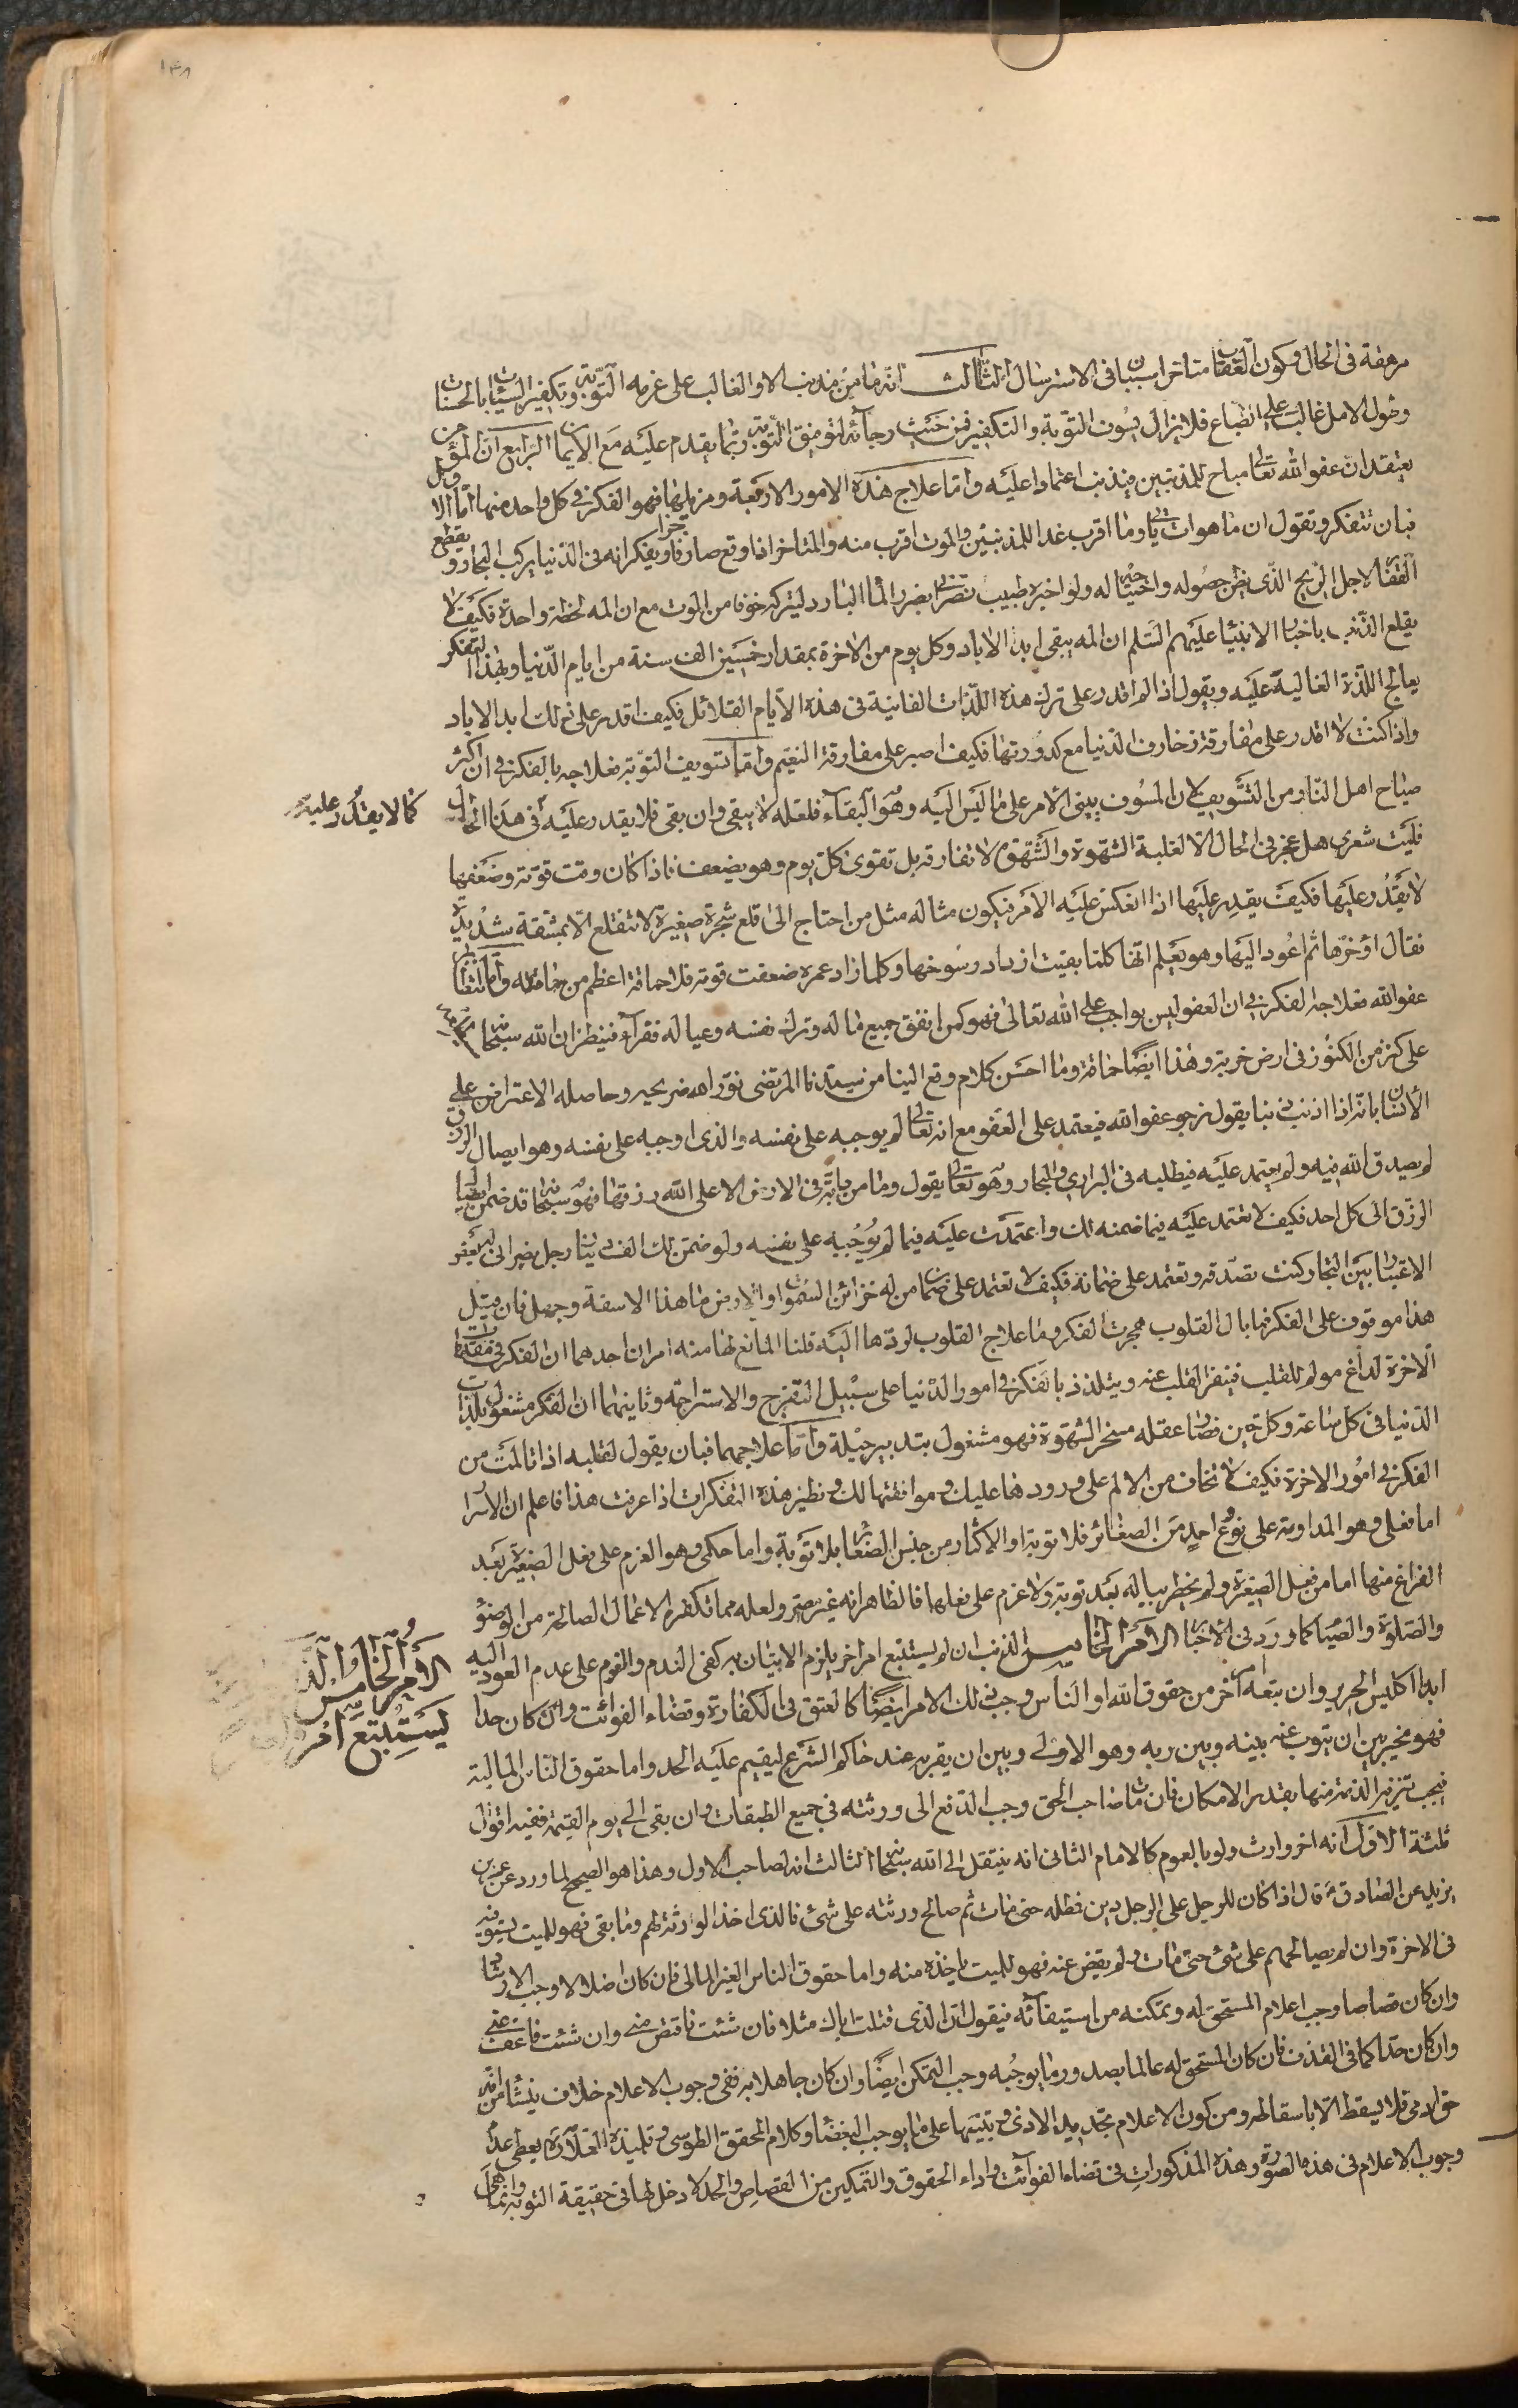 ١٣٨
مرهفة فى الحال وكون العقاب متاخرا سببان فى الاسترسال الثالث انه ما من مذنب الا والغالب على عزمه التوبة وتكفير السيئات بالحسنات
وطول الامل غالب على الطباع فلا يزال يسوف التوبة والتكفير فمن حيث رجائه لتوفيق التوبة ربما يقدم عليه مع الايمان الرابع ان المؤمن
يعتقد ان عفو الله تعالى مباح للمذنبين فيذنب اعتمادا عليه واما علاج هذه الامور الاربعة ومزيلها فهو الفكر فى كل واحد منها اما الاول
فبان تتفكر وتقول ان ما هو ات ات وما اقرب غدا للمذنبين والموت اقرب منه والمتاخر اذا وقع صار ويفكر انه فى الدنيا يركب البحار ويقطع
القفار لاجل الربح الذى يظن حصوله واحتياجه له ولو اخبره طبيب نصرانى بضرر الماء البارد ليتركه خوفا من الموت مع ان المه لحظة واحدة فكيف لا
يقلع الذنب باخبار الانبياء عليهم السلم ان المه يبقى ابد الاباد وكل يوم من الاخرة بمقدار خمسين الف سنة من ايام الدنيا وبهذا التفكر
يعالج اللذة الغالبة عليه ويقول اذا لم اقدر على ترك هذه اللذات الفانية فى هذه الايام القلائل فكيف اقدر على ذلك ابد الاباد
واذا كنت لا اقدر على مفارقة زخارف الدنيا مع كدورتها فكيف اصبر على مفارقة النعيم واما تسويف التوبة فعلاجه بالفكر فى ان اكثر
صياح اهل النار من التسويف لان المسوف يبنى الامر على ما ليس اليه وهو البقاء فلعله لا يبقى وان بقى فلا يقدر عليه فى هذا الحال
كما لا يقدر عليه
فليت شعرى هل عجز فى الحال الا لغلبة الشهوة والشهوة لا تفارقه بل تقوى كل يوم وهو يضعف فاذا كان وقت قوته وضعفها
لا يقدر عليها فكيف يقدر عليها اذا انعكس عليه الامر فيكون مثاله مثل من احتاج الى قلع شجرة صغيرة لا تنقلع الا بمشقة شديدة
فقال اؤخرها ثم اعود اليها وهو يعلم انها كلما بقيت ازداد رسوخها وكلما زاد عمره ضعفت قوته فلا حماقة اعظم من حماقته واما انتظار
عفو الله فعلاجه الفكر فى ان العفو ليس بواجب على الله تعالى فهو كمن انفق جميع ماله وترك نفسه وعياله فقراء فينظر ان الله سبحانه
على كنز من الكنوز فى ارض خربة وهذا ايضا حماقة وما احسن كلام وقع الينا من سيدنا المرتضى نور الله ضريحه وحاصله الاعتراض على
الانسان بانه اذا اذنب ذنبا يقول نرجو عفو الله فيعتمد على العفو مع انه تعالى لم يوجبه على نفسه والذى اوجبه على نفسه وهو ايصال الرزق
لم يصدق الله فيه ولم يعتمد عليه فيطلبه فى البرارى والبحار وهو تعالى يقول وما من دابة فى الارض الا على الله رزقها فهو سبحانه قد ضمن ايصال
الرزق الى كل احد فكيف لا تعتمد عليه فيما ضمنه لك واعتمدت عليه فيما لم يوجبه على نفسه ولو ضمن لك الف دينار رجل نصرانى
الاعتبار بين التجار كنت تصدقه وتعتمد على ضمانه فكيف لا تعتمد على ضمان من له خزائن السموات والارض ما هذا الا سفه وجهل فان قيل
هذا موقوف على الفكر فما بال القلوب هجرت الفكر وما علاج القلوب لردها اليه قلنا المانع لها منه امران احدهما ان الفكر فى عقوبات
الاخرة لداغ مولم للقلب فينفر القلب عنه ويتلذذ بالفكر فى امور الدنيا على سبيل التفرج والاستراحة وثانيهما ان الفكر مشغول بلذات
الدنيا فى كل ساعة وكل حين فصار عقله مسخر الشهوة فهو مشغول بتدبير حيلة واما علاجهما فبان يقول لقلبه اذا تالمت من
الفكر فى امور الاخرة فكيف لا تخاف من الالم على ورودها عليك وموافقتها لك ونظير هذه التفكرات اذا عرفت هذا فاعلم ان الاصرار
اما فعلى وهو المداومة على نوع احد من الصغائر فلا توبة او الاكثار من جنس الصغائر بلا توبة واما حكمى وهو العزم على فعل الصغيرة بعد
الفراغ منها اما من فعل الصغيرة ولم يخطر بباله بعد توبة ولا عزم على فعلها فالظاهر انه غير مصر ولعله مما تكفره الاعمال الصالحة من الوضوء
والصلوة والصيام كما ورد فى الاخبار الامر الخامس الذنب ان لم يستتبع امرا اخر يلزم الاتيان به كفى الندم والعزم على عدم العود اليه
الامر الخامس
يستتبع امر
ابدا كلبس الحرير وان تبعه اخر من حقوق الله او الناس وجب ذلك الامر ايضا كالعتق فى الكفارة وقضاء الفوائت وان كان حدا
فهو مخير بين ان يتوب عنه بينه وبين ربه وهو الاولى وبين ان يقر به عند حاكم الشرع ليقيم عليه الحد واما حقوق الناس المالية
فيجب تبرئة الذمة منها بقدر الامكان فان مات صاحب الحق وجب الدفع الى ورثته فى جميع الطبقات وان بقى الى يوم القيمة ففيه اقوال
ثلثة الاول انه اخر وارث ولو بالعموم كالامام الثانى انه ينتقل الى الله سبحانه الثالث انه لصاحبه الاول وهذا هو الصحيح لما ورد عن عمر بن
يزيد عن الصادق ع قال اذا كان للرجل على الرجل دين فمطله حتى مات ثم صالح ورثته على شئ فالذى اخذ الورثة لهم وما بقى فهو للميت يستوفيه
فى الاخرة وان لم يصالحهم على شئ حتى مات ولم يقض عنه فهو للميت ياخذه منه واما حقوق الناس الغير المالى فان كان اضلالا وجب الارشاد
وان كان قصاصا وجب اعلام المستحق له وتمكنه من استيفائه فيقول انا الذى قتلت اباك مثلا فان شئت فاقتص منى وان شئت فاعف عنى
وان كان حدا كما فى القذف فان كان المستحق له عالما بصدور ما يوجبه وجب التمكن ايضا وان كان جاهلا به ففى وجوب الاعلام خلاف ينشا من انه
حق ادمى فلا يسقط الا باسقاطه ومن كون الاعلام تجديد الاذى وتنبيها على ما يوجب البغضاء وكلام المحقق الطوسى وتلميذه العلامة يعطى عدم
وجوب الاعلام فى هذه الصورة وهذه المذكورات فى قضاء الفوائت واداء الحقوق والتمكين من القصاص والحد لا دخل لها فى حقيقة التوبة وانما هى